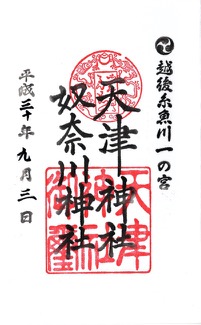 越後糸魚川一の宮
天津神社
奴奈川神社
平成三十年九月三日